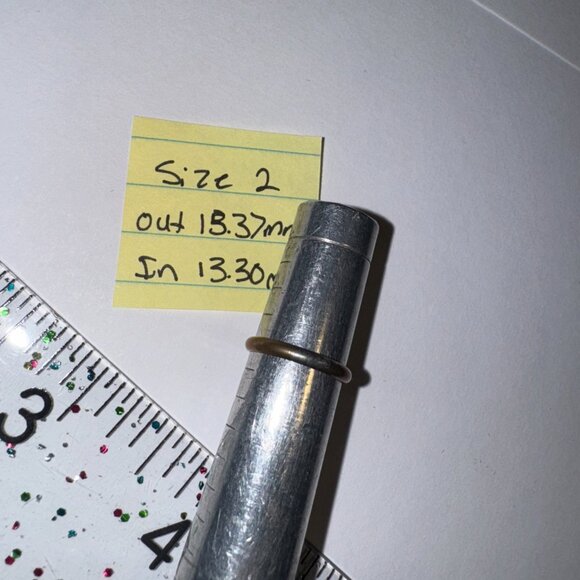 Size 2
out 15.37mm
In 13.30m
3
4